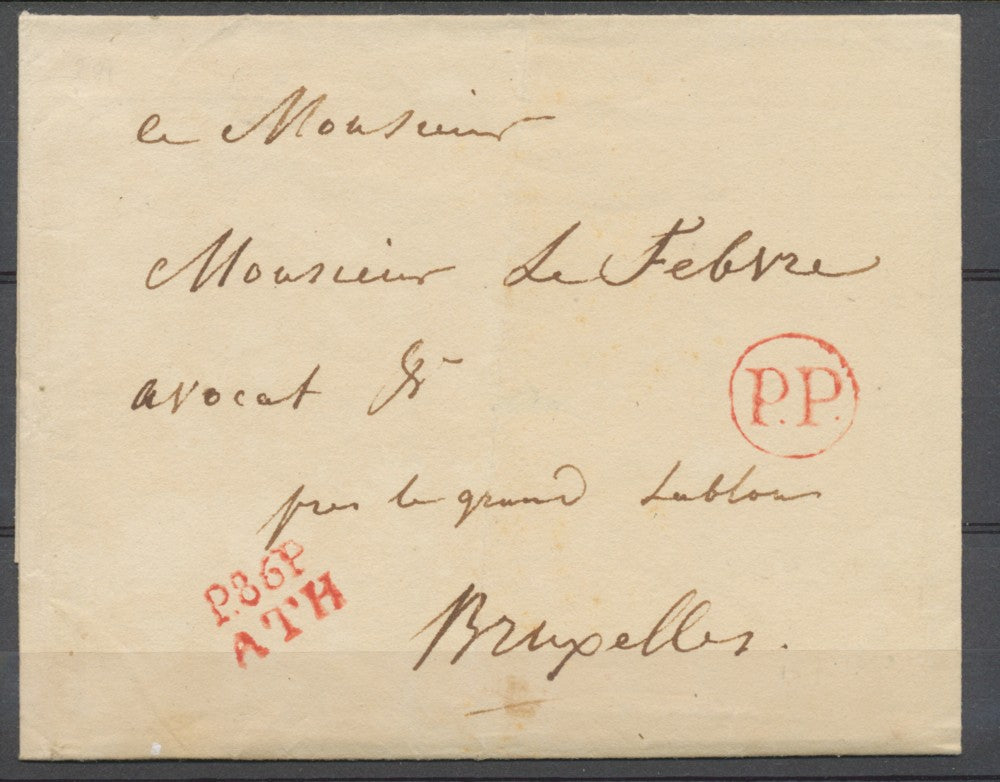 a Monsieur
Monsieur Le Febvre
avocat &r
P.P.
pres le grand Sablons
P.86P
ATH
Bruxelles.